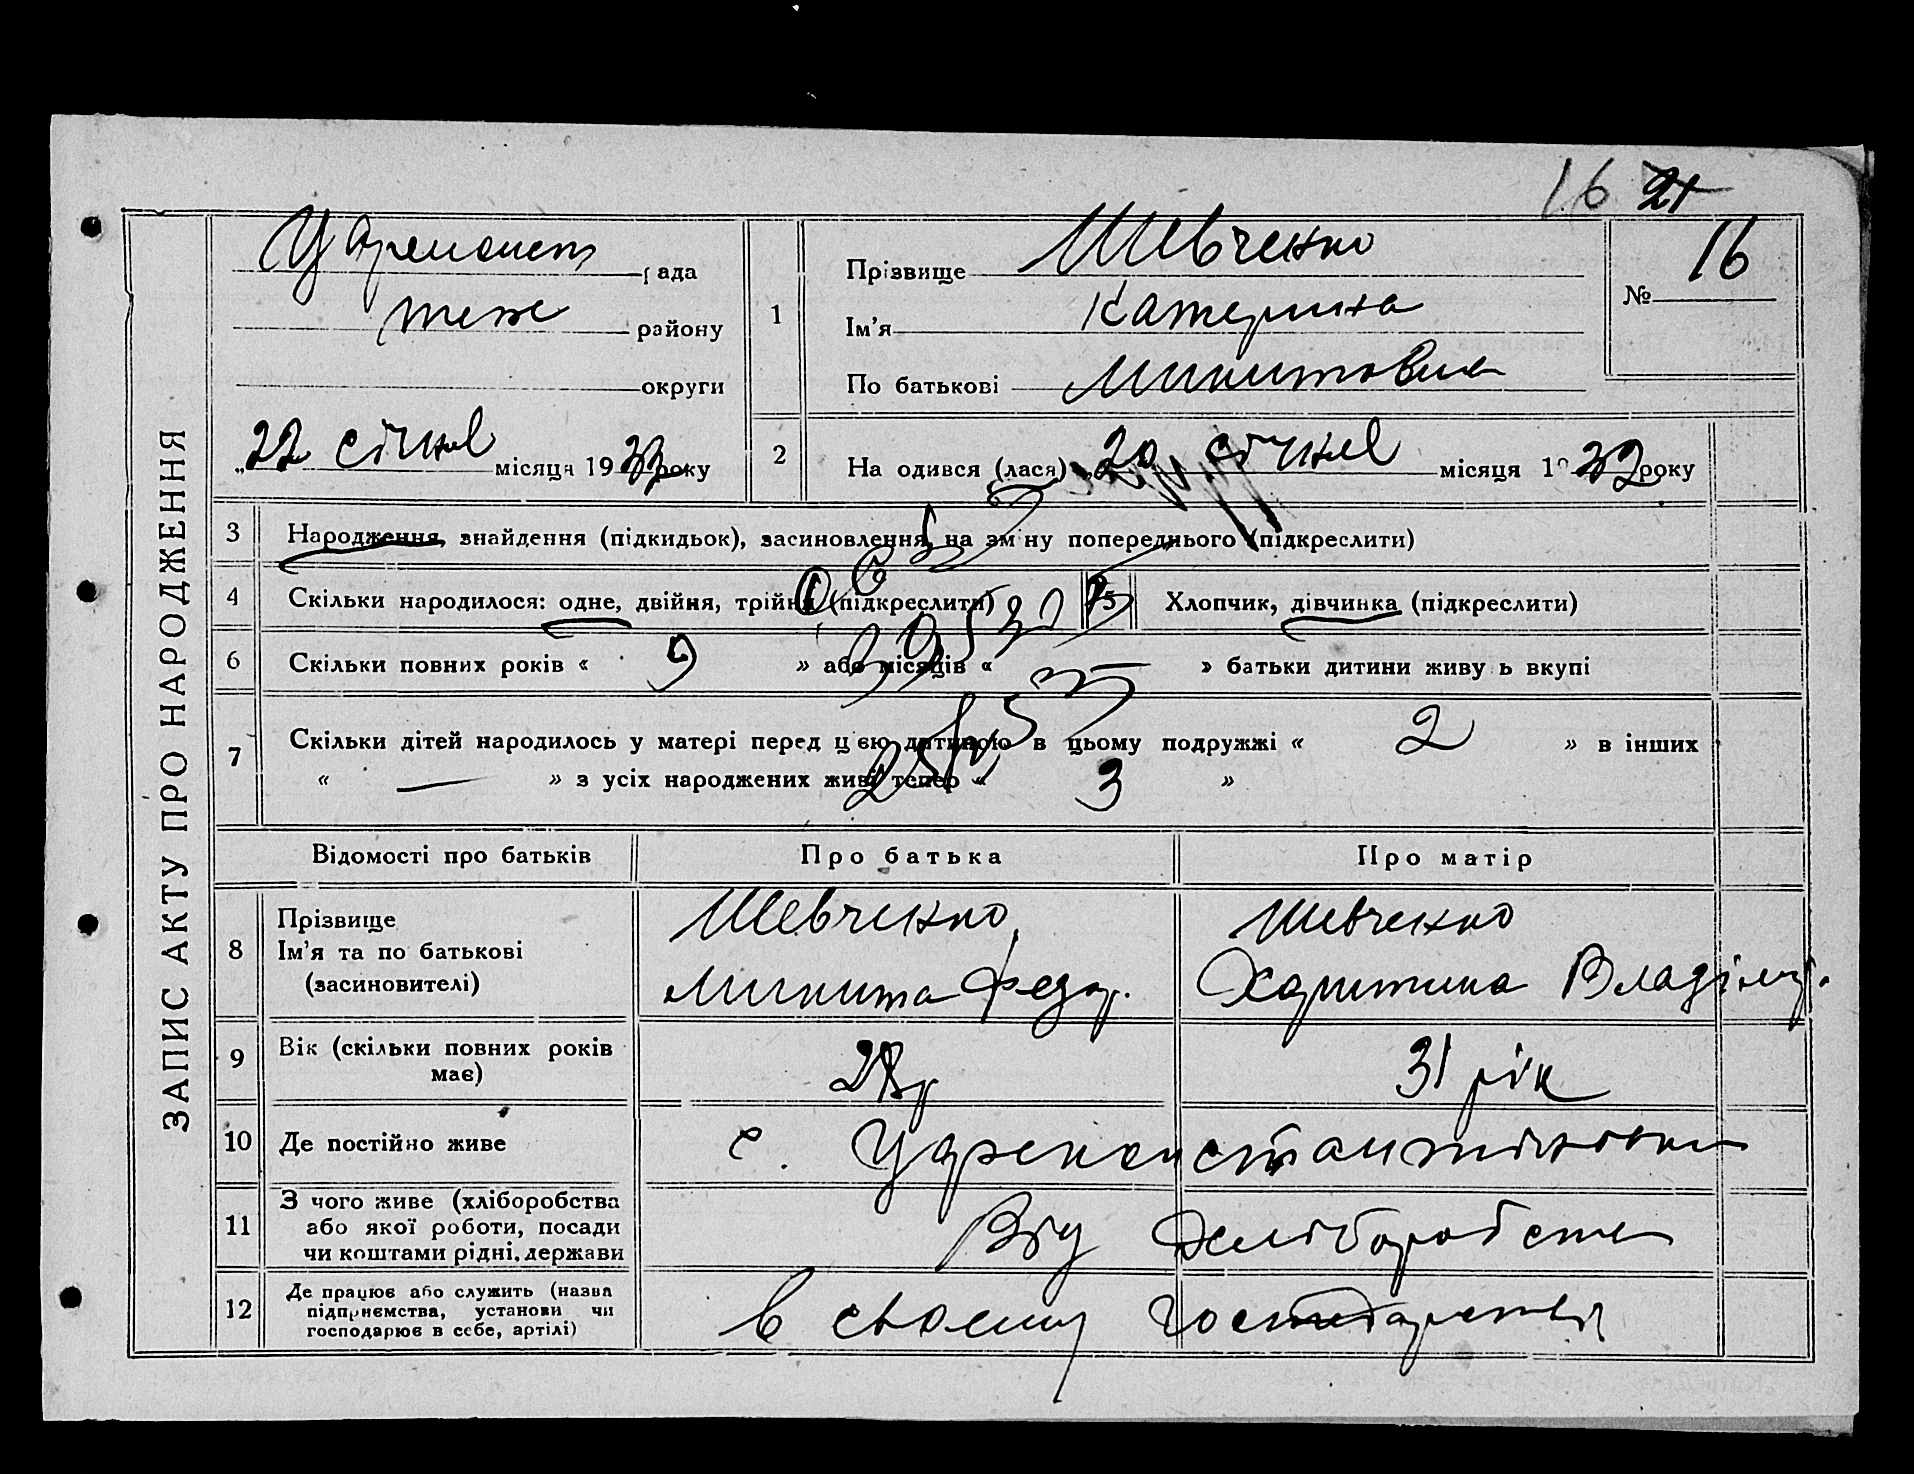 16 21
ЗАПИС АКТУ ПРО НАРОДЖЕННЯ
Цареконст рада
теж району
округи
„22 січня місяця 1932 року
1
Прізвище Шевченко
Ім'я Катерина
По батькові Микитовна
№ 16
2
На одився (лася) „20 січня місяця 1932 року
3 Народження, знайдення (підкидьок), засиновлення, на зм ну попереднього (підкреслити)
4 Скільки народилося: одне, двійня, трійня (підкреслити) 5 Хлопчик, дівчинка (підкреслити)
6 Скільки повних років « 9 » або місяців « — » батьки дитини живу ь вкупі
7 Скільки дітей народилось у матері перед цією дитиною в цьому подружжі « 2 » в інших
« — » з усіх народжених живі тепер « 3 »
Відомості про батьків Про батька Про матір
8 Прізвище Ім'я та по батькові (засиновителі)
Шевченко Микита Федор.
Шевченко Харитина Владімір.
9 Вік (скільки повних років має) 28 р 31 рік
10 Де постійно живе с. Цареконстантиновка
11 З чого живе (хліборобства або якої роботи, посади чи коштами рідні, держави Від хліборобства
12 Де працює або служить (назва підприємства, установи чи господарює в себе, артілі) в своему господарстві